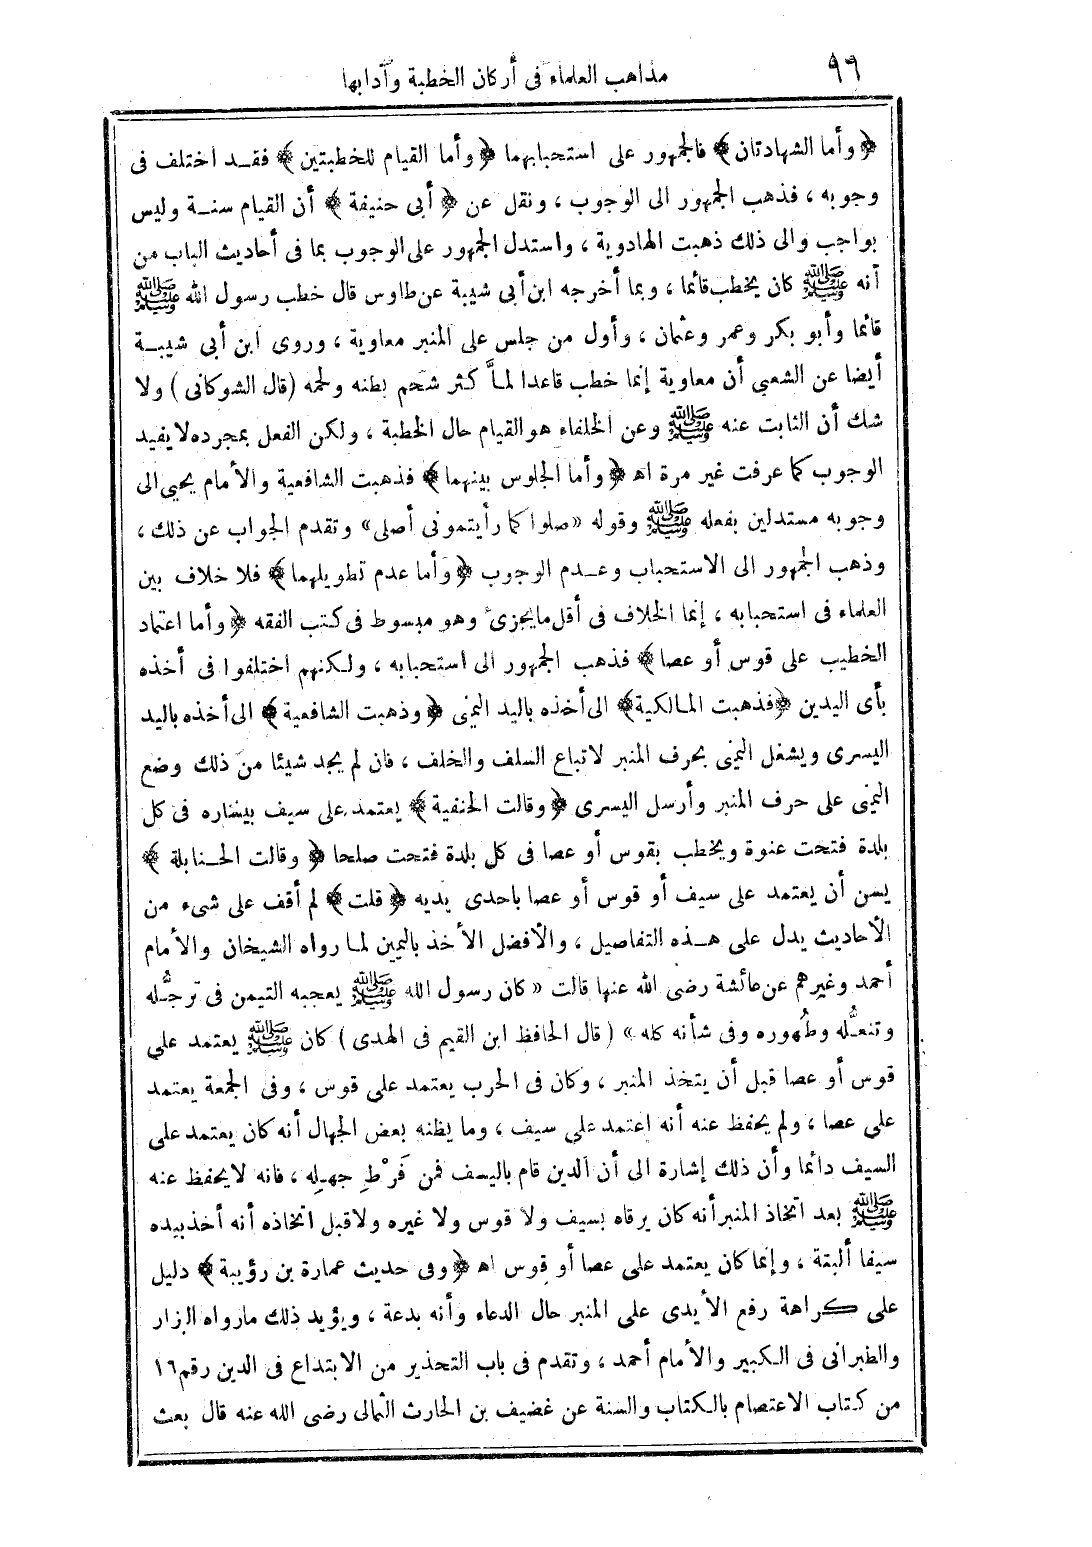 ٩٦
مذاهب العلماء فى أركان الخطبة وآدابها
﴿ وأما الشهادتان ﴾ فالجمهور على استحبابهما ﴿ وأما القيام للخطبتين ﴾ فقد اختلف فى
وجوبه ، فذهب الجمهور الى الوجوب ، ونقل عن ﴿ أبى حنيفة ﴾ أن القيام سنة وليس
بواجب والى ذلك ذهبت الهادوية ، واستدل الجمهور على الوجوب بما فى أحاديث الباب من
أنه ﷺ كان يخطب قائما ، وبما أخرجه ابن أبى شيبة عن طاوس قال خطب رسول الله ﷺ
قائما وأبو بكر وعمر وعثمان ، وأول من جلس على المنبر معاوية ، وروى ابن أبى شيبة
أيضا عن الشعبي أن معاوية إنما خطب قاعدا لمَّا كثر شحم بطنه ولحمه (قال الشوكانى) ولا
شك أن الثابت عنه ﷺ وعن الخلفاء هو القيام حال الخطبة ، ولكن الفعل بمجرده لا يفيد
الوجوب كما عرفت غير مرة اهـ ﴿ وأما الجلوس بينهما ﴾ فذهبت الشافعية والأمام يحيى الى
وجوبه مستدلين بفعله ﷺ وقوله «صلوا كما رأيتمونى أصلى» وتقدم الجواب عن ذلك ،
وذهب الجمهور الى الاستحباب وعدم الوجوب ﴿ وأما عدم تطويلهما ﴾ فلا خلاف بين
العلماء فى استحبابه ، إنما الخلاف فى أقل ما يجزئ وهو مبسوط فى كتب الفقه ﴿ وأما اعتماد
الخطيب على قوس أو عصا ﴾ فذهب الجمهور الى استحبابه ، ولكنهم اختلفوا فى أخذه
بأى اليدين ﴿ فذهبت المالكية ﴾ الى أخذه باليد اليمنى ﴿ وذهبت الشافعية ﴾ الى أخذه باليد
اليسرى ويشغل اليمنى بحرف المنبر لاتباع السلف والخلف ، فان لم يجد شيئا من ذلك وضع
اليمنى على حرف المنبر وأرسل اليسرى ﴿ وقالت الحنفية ﴾ يعتمد على سيف بيساره فى كل
بلدة فتحت عنوة ويخطب بقوس أو عصا فى كل بلدة فتحت صلحا ﴿ وقالت الحنابلة ﴾
يسن أن يعتمد على سيف أو قوس أو عصا باحدى يديه ﴿ قلت ﴾ لم أقف على شىء من
الأحاديث يدل على هذه التفاصيل ، والأفضل الأخذ باليمين لما رواه الشيخان والأمام
أحمد وغيرهم عن عائشة رضى الله عنها قالت «كان رسول الله ﷺ يعجبه التيمن فى ترجُّله
وتنعُّله وطُهوره وفى شأنه كله » ( قال الحافظ ابن القيم فى الهدى ) كان ﷺ يعتمد على
قوس أو عصا قبل أن يتخذ المنبر ، وكان فى الحرب يعتمد على قوس ، وفى الجمعة يعتمد
على عصا ، ولم يحفظ عنه أنه اعتمد على سيف ، وما يظنه بعض الجهال أنه كان يعتمد على
السيف دائما وأن ذلك إشارة الى أن الدين قام باليسف فمن فَرْطِ جهلِه ، فانه لا يحفظ عنه
ﷺ بعد اتخاذ المنبر أنه كان يرقاه بسيف ولا قوس ولا غيره ولا قبل اتخاذه أنه أخذ بيده
سيفا ألبتة ، وإنما كان يعتمد على عصا أو قوس اهـ ﴿ وفى حديث عمارة بن رؤيبة ﴾ دليل
على كراهة رفع الأيدى على المنبر حال الدعاء وأنه بدعة ، ويؤيد ذلك مارواه البزار
والطبرانى فى الكبير والأمام أحمد ، وتقدم فى باب التحذير من الابتداع فى الدين رقم ١٦
من كتاب الاعتصام بالكتاب والسنة عن غضيف بن الحارث الثمالى رضى الله عنه قال بعث